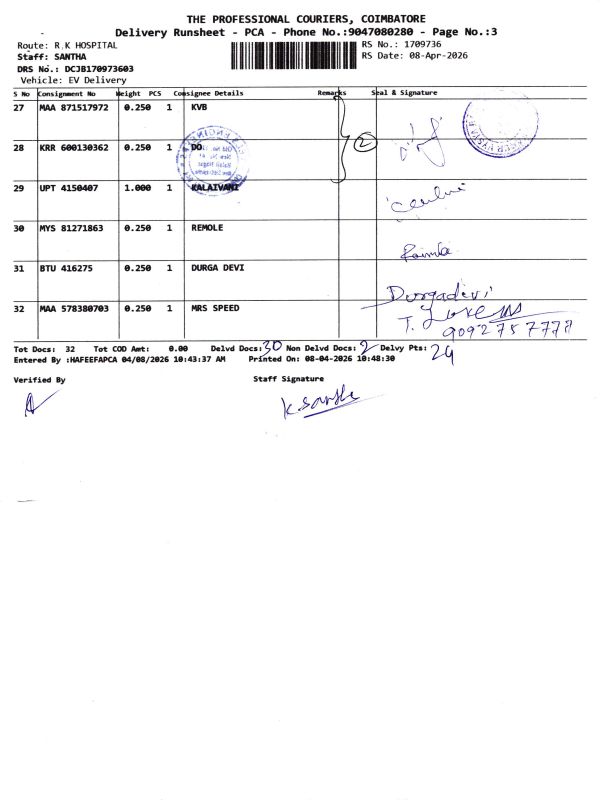 THE PROFESSIONAL COURIERS, COIMBATORE
Delivery Runsheet - PCA - Phone No.:9047080280 - Page No.:3
Route: R.K HOSPITAL
RS No.: 1709736
Staff: SANTHA
RS Date: 08-Apr-2026
DRS No.: DCJB170973603
Vehicle: EV Delivery
S No Consignment No Weight PCS Consignee Details Remarks Seal & Signature
27 MAA 871517972 0.250 1 KVB
2
28 KRR 600130362 0.250 1 DO
29 UPT 4150407 1.000 1 KALAIVANI
30 MYS 81271863 0.250 1 REMOLE
31 BTU 416275 0.250 1 DURGA DEVI
Durgadevi
32 MAA 578380703 0.250 1 MRS SPEED
9092757778
Tot Docs: 32 Tot COD Amt: 0.00 Delvd Docs: 30 Non Delvd Docs: 2 Delvy Pts: 29
Entered By :HAFEEFAPCA 04/08/2026 10:43:37 AM Printed On: 08-04-2026 10:48:30
Verified By Staff Signature
K. Santha